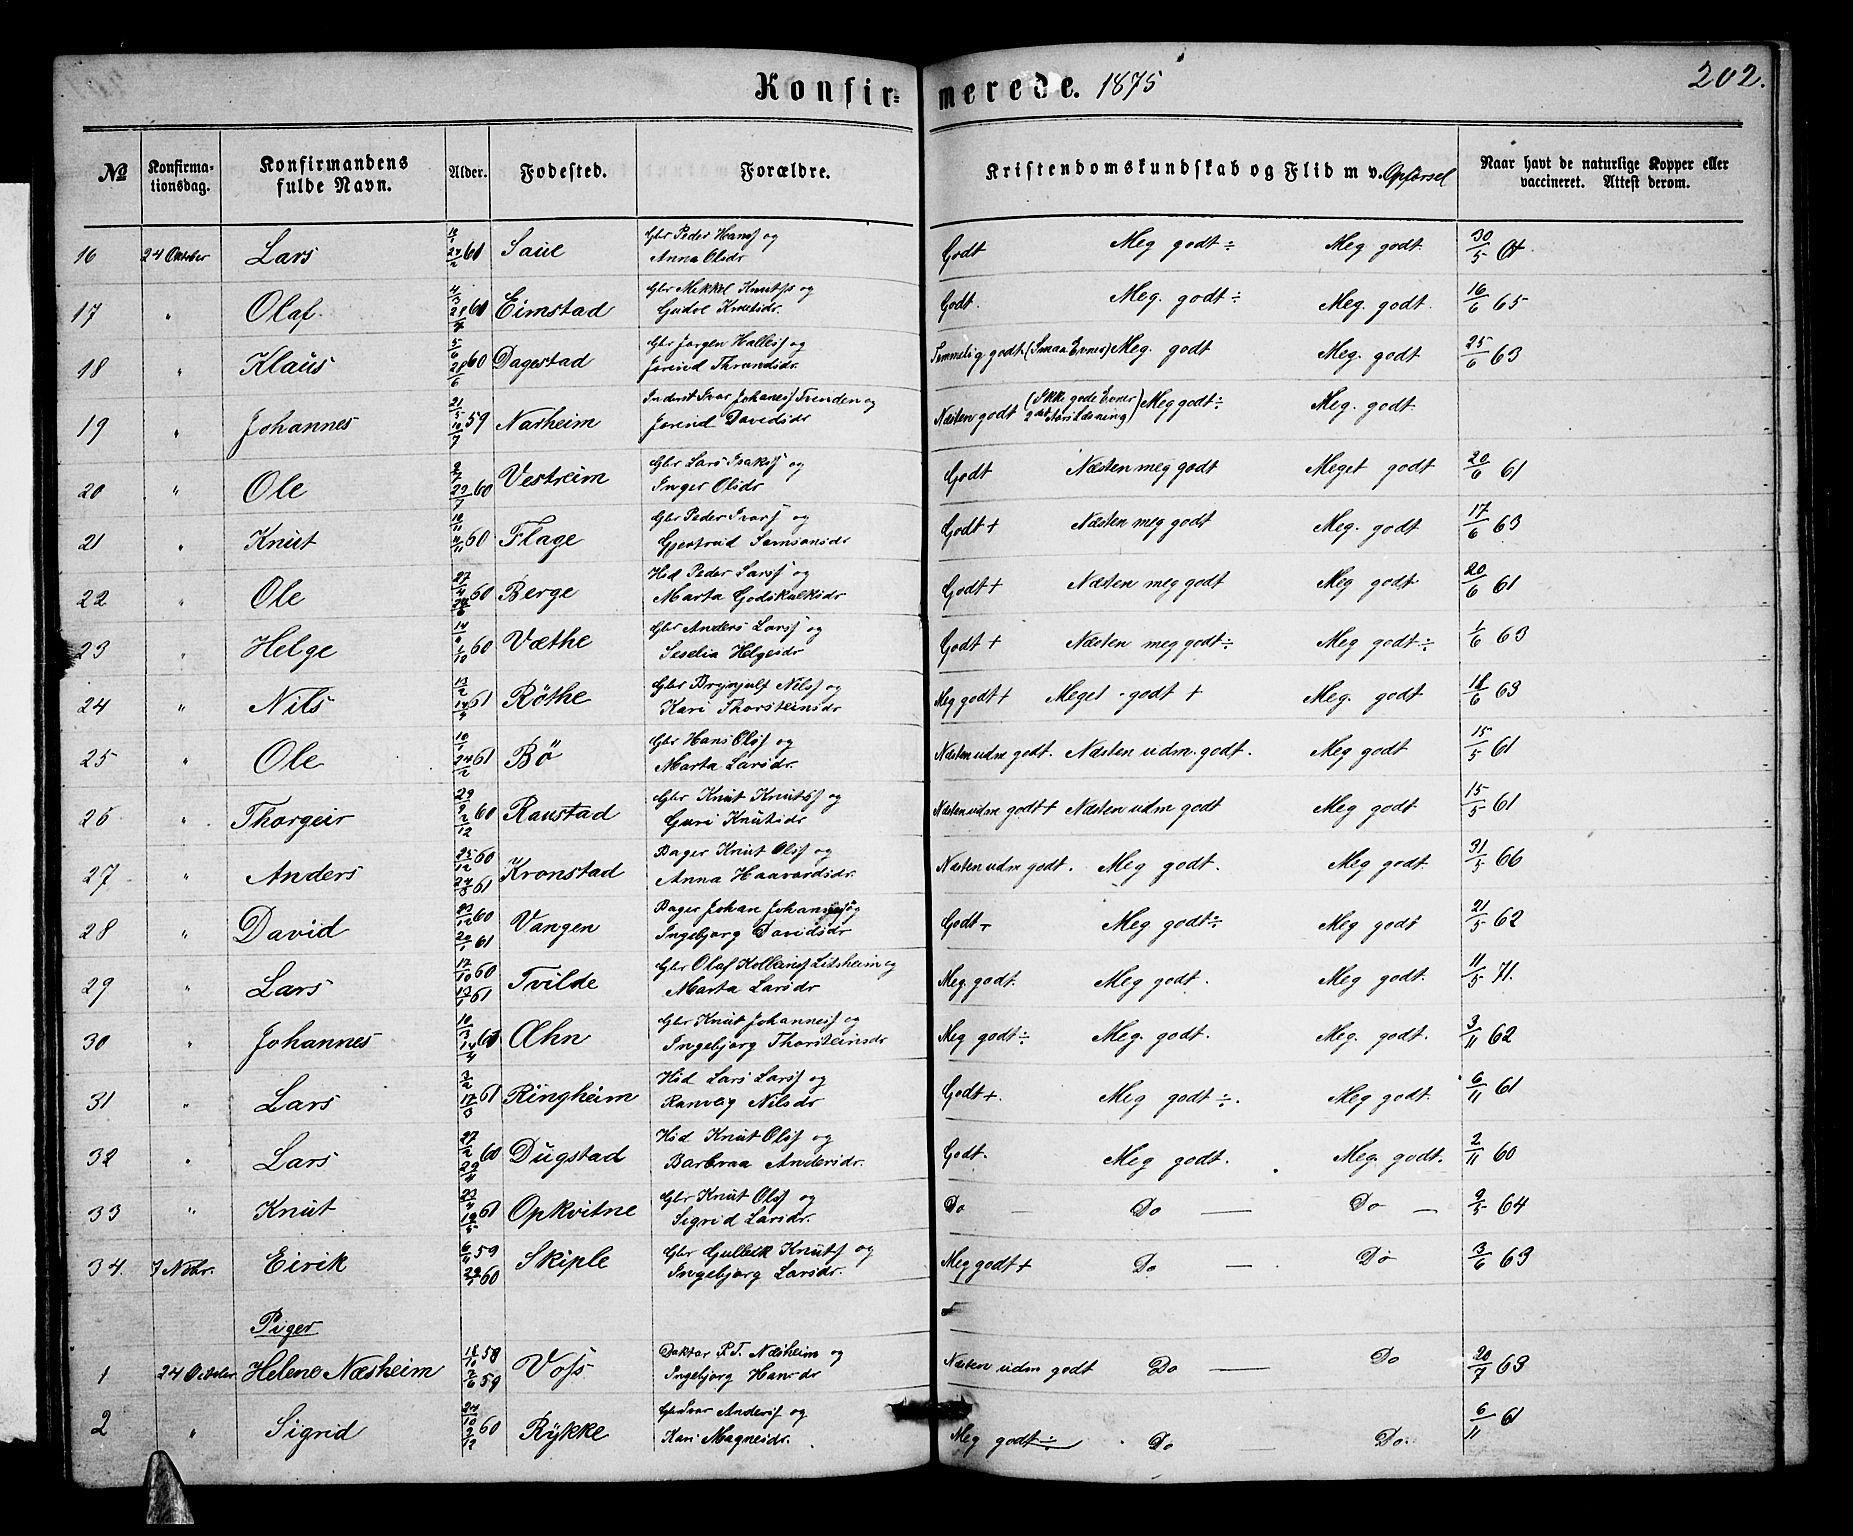 Konfirmerede. 1875
202.
No Konfirmationsdag. Konfirmandens fulde Navn. Alder. Fødested. Forældre. Kristendomskundskab og Flid m v. Opførsel Naar havt de naturlige Kopper eller vaccineret. Attest derom.
16 24 Oktober Lars 24/2 60 Saue Gbr Peder Hanss og Anna Olsdr Godt Meg godt ÷ Meg. godt. 30/5 61
17 " Olaf 60 Eimstad Gbr Mikkel Knutss og Gudve Knutsdr. Godt. Meg. godt ÷ Meg. godt. 16/6 65
18 " Klaus 5/6 28/6 60 Dagestad Gbr Jørgen Halless og Jorind Thrundsdr. Temmelig godt. (Smaa Evner) Meg. godt Meg. godt 25/6 63
19 " Johannes 21/5 10/7 59 Narheim Inderst Ivar Johaness Tvinden og Jorind Davidsdr Næsten godt (Ikk. gode Evner 2det Aars Læsning) Meg godt ÷ Meg. godt.
20 " Ole 22/7 60 Vestreim Gbr Lars Isakss og Inger Olsdr Godt Næsten meg godt Meget godt 20/6 61
21 " Knut 10/11 11/11 60 Flage Gbr Peder Ivarss og Gjertrud Samsonsdr Godt + Næsten meg godt Meg. godt 17/6 63
22 " Ole 27/4 60 Berge Hsd Peder Larss og Marta Godskalksdr Godt + Næsten meg godt Meg godt 20/6 61
23 " Helge 1/10 60 Væthe Gbr Anders Larss og Seselia Helgesdr Godt + Næsten meg godt ÷ Meg godt ÷ 1/6 63
24 " Nils 13/2 14/4 61 Röthe Gbr Brynjulf Nilss og Kari Thorsteinsdr Meg godt + Meget godt + Meg. godt 18/6 63
25 " Ole 10/1 24/2 61 Bö Gbr Hans Olss og Marta Larsdr. Næsten udm godt. Næsten udm. godt. Meg godt 15/5 61
26 " Thorgeir 29/9 2/12 60 Raustad Gbr Knut Knutss og Guri Knutsdr Næsten udm godt + Næsten udm godt Meg godt 15/5 61
27 " Anders 25/12 60 24/3 61 Kronstad Bager Knut Olss og Anna Haavardsdr. Næsten udm godt. Meg godt. Meg godt. 31/5 66
28 " David 23/12 60 20/1 61 Vangen Bager Johan Johanness og Ingebjørg Davidsdr Godt Meg godt ÷ Meg godt 21/5 62
29 " Lars 17/10 60 13/1 61 Tvilde Gbr Olaf Kolbeinss Litsheim og Marta Larsdr Meg. godt. Meg godt. Meg godt. 11/5 71.
30 " Johannes 10/3 14/4 60 Æhn Gbr Knut Johanness og Ingebjørg Thorsteinsdr Meg godt ÷ Meg. godt. Meg. godt. 3/11 62
31 " Lars 3/2 17/3 61 Ringheim Hsd Lars Larss og Ranveig Nilsdr Godt +. Meg godt ÷. Meg godt. 6/11 61
32 " Lars 27/2 22/4 60 Dugstad Hsd Knut Olss og Barbraa Andersdr. Godt. Meg godt. Meg. godt. 2/11 60
33 " Knut 23/4 19/5 61 Opkvitne Gbr Knut Olss og Sigrid Larsdr. Do — Do — Do — 9/5 64
34. 7 Nobr. Eirik 6/11 59 22/1 60 Skiple Gbr Gulleik Knutss og Ingebjørg Larsdr. Meg godt + Do — Do 3/6 63
Piger
1 24 October Helene Næsheim 18/10 58 7/6 59 Voss Doktor P. T. Næsheim og Ingebjørg Hansdr Næsten udm godt Do — Do 20/7 63
2 " Sigrid 24/10 2/12 60 Rykke Gbr Ivar Anderss og Kari Magnesdr. Meg godt ÷ Do — Do. 6/11 61